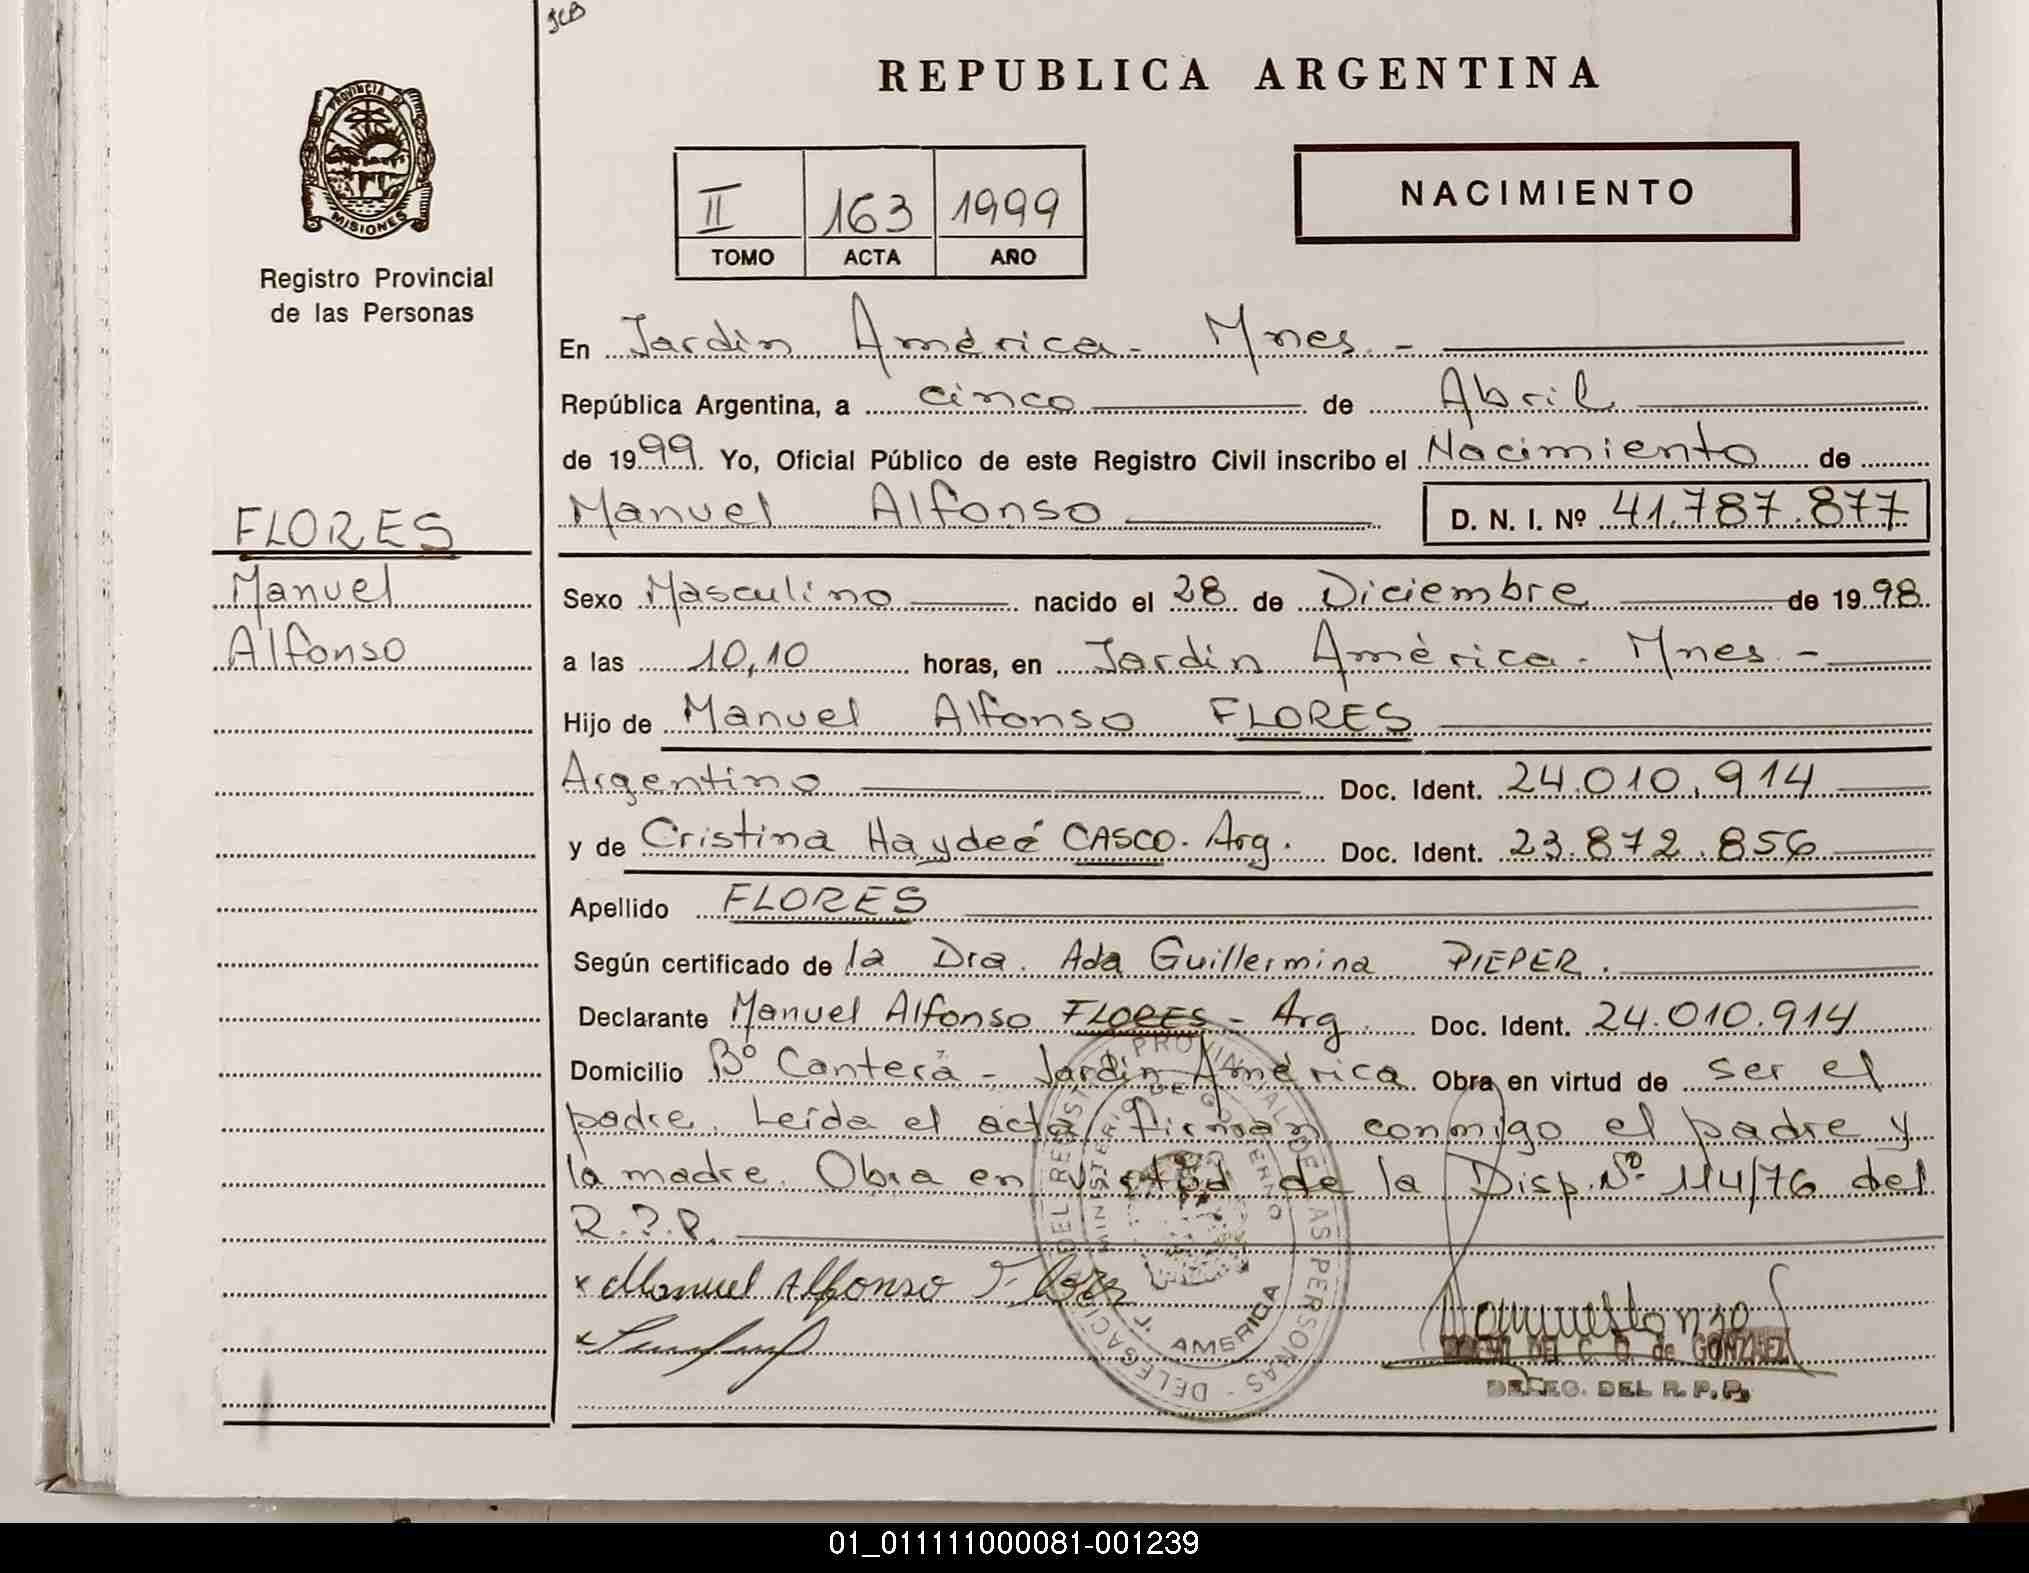 JCB
REPUBLICA ARGENTINA
PROVINCIA DE
MISIONES
Registro Provincial
de las Personas
II 163 1999
TOMO ACTA AÑO
NACIMIENTO
En Jardin América - Mnes. -
República Argentina, a cinco de Abril
de 1999 Yo, Oficial Público de este Registro Civil inscribo el Nacimiento de
Manuel Alfonso D. N. I. Nº 41.787.877
FLORES
Manuel
Alfonso
Sexo Masculino nacido el 28 de Diciembre de 1998
a las 10,10 horas, en Jardin América - Mnes -
Hijo de Manuel Alfonso FLORES
Argentino Doc. Ident. 24.010.914
y de Cristina Haydeé CASCO - Arg. Doc. Ident. 23.872.856
Apellido FLORES
Según certificado de la Dra. Ada Guillermina PIEPER.
Declarante Manuel Alfonso FLORES - Arg. Doc. Ident. 24.010.914
Domicilio Bº Cantera - Jardin América Obra en virtud de ser el
padre. Leída el acta firman conmigo el padre y
la madre. Obra en virtud de la Disp. Nº 114/76 del
R.P.P.
x Manuel Alfonso Flores
x
DEL REGISTRO PROVINCIAL DE LAS PERSONAS - DELEGACION
MINISTERIO DE GOBIERNO
J. AMERICA
DEL C. D. de GONZALEZ
DELEG. DEL R. P. P.
01_011111000081-001239